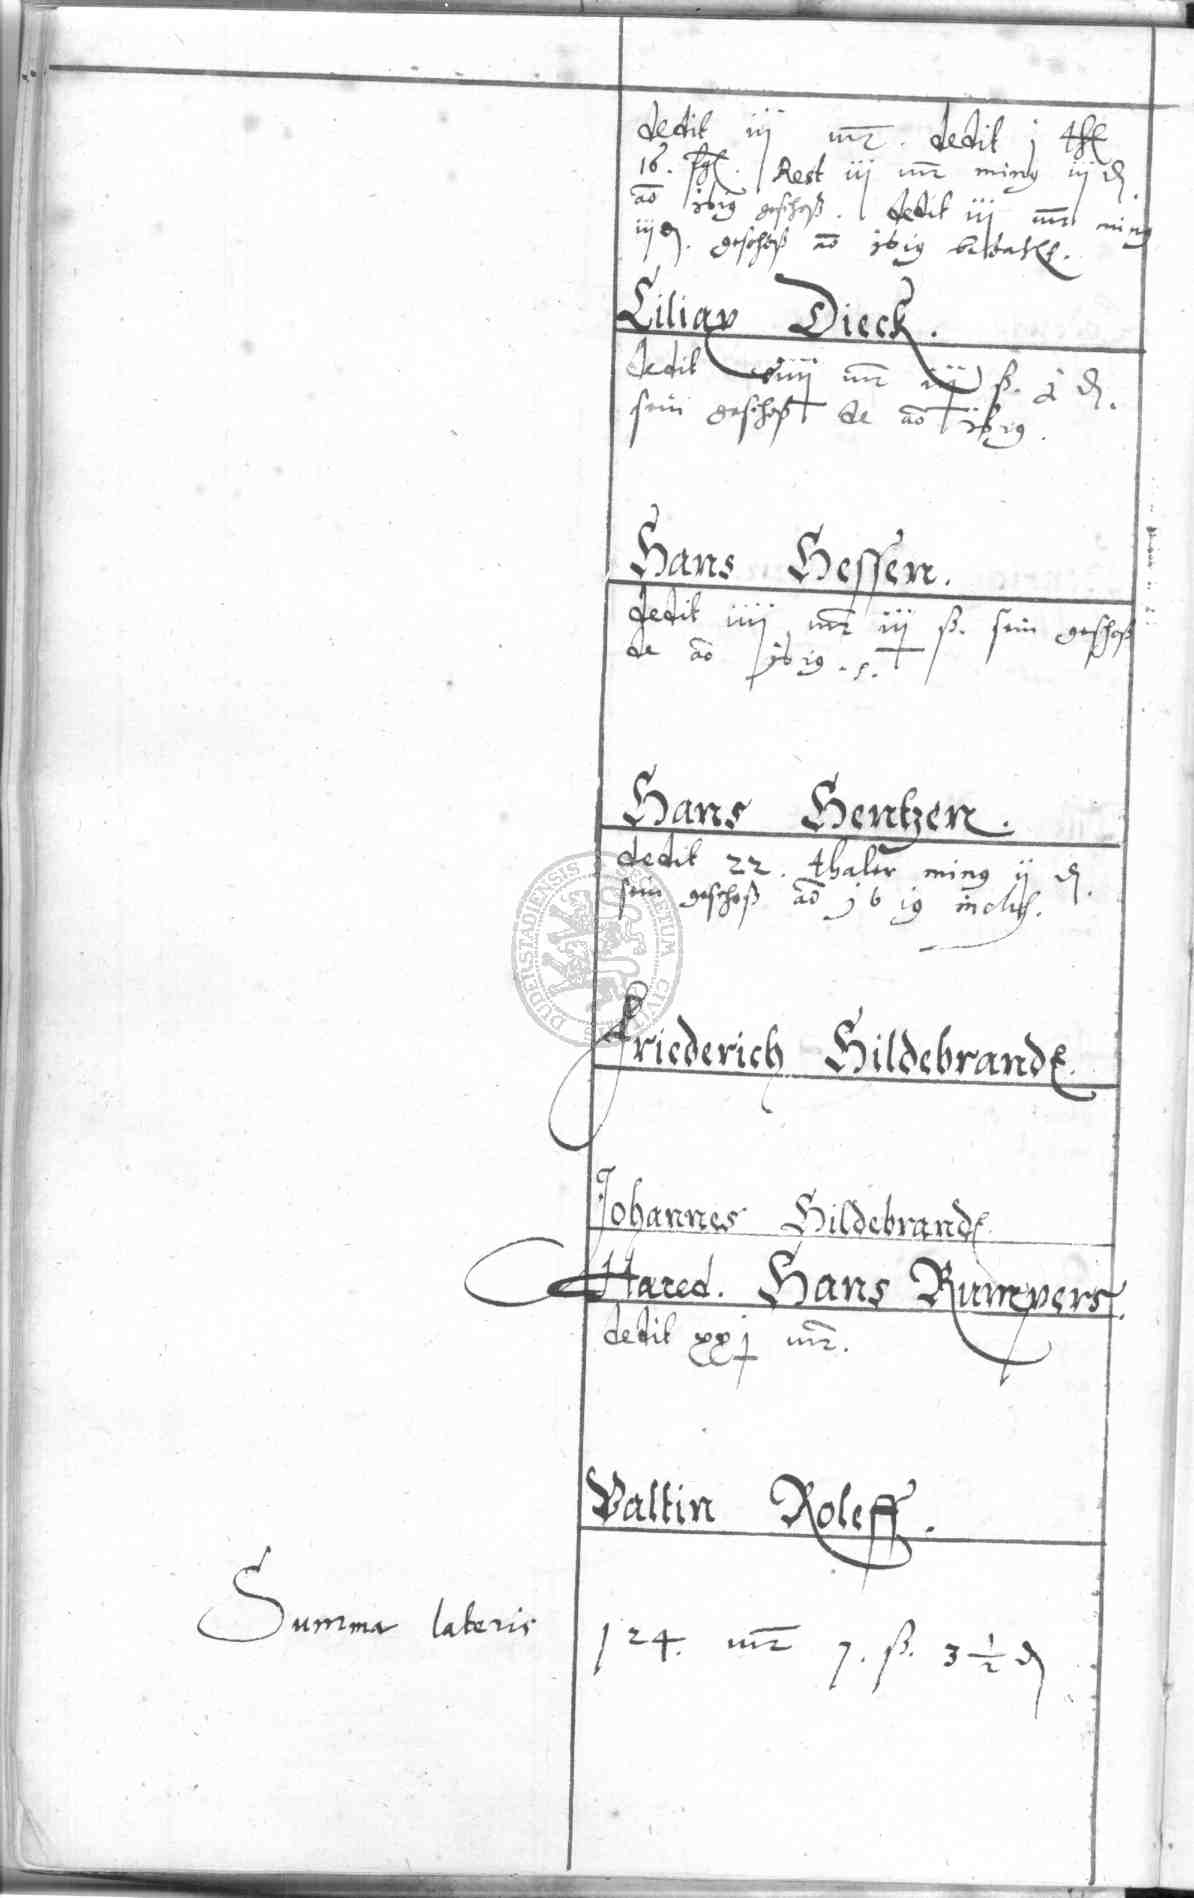 dedit iij mr. dedit j thl
16. fgl. Rest iij mr ming iij d.
ao 1619 geschoß. dedit iij mr ming
iij d. geschoß ao 1619 bezahlt.
Cilian Dieck.
dedit mr ß. d.
sein geschoß de ao 1619.
Hans Hessen.
dedit iiij mr iij ß. sein geschoß
de ao 1619.
Hans Hentzen.
dedit 22. thaler ming ij d.
sein geschoß ao 1619 inclus.
DUDERSTADIENSIS SECRETUM CIVITATIS
Friederich Hildebrandt.
Johannes Hildebrandt
Hared. Hans Rumpers.
dedit xxj mr.
Valtin Roleff.
Summa lateris 124. mr 7. ß. 3 1/2 d